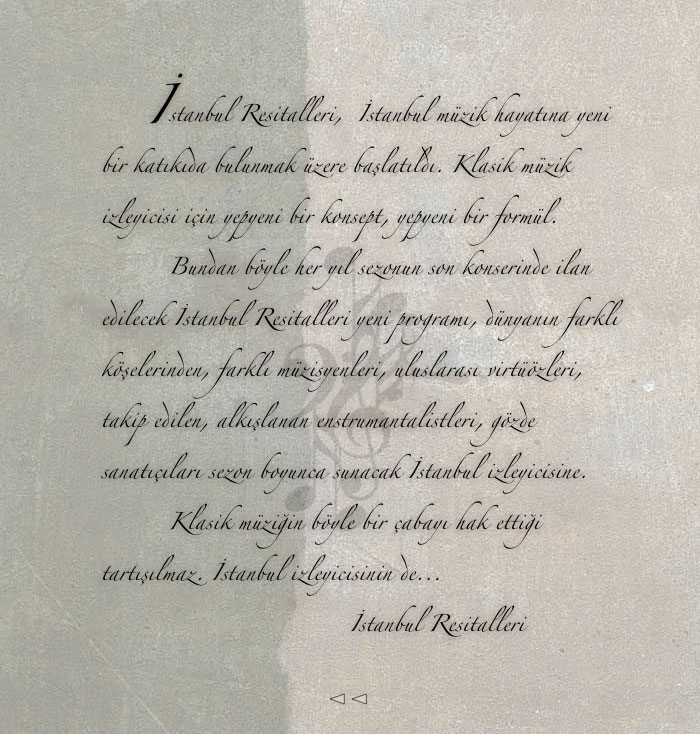 İstanbul Resitalleri, İstanbul müzik hayatına yeni
bir katıkıda bulunmak üzere başlatıldı. Klasik müzik
izleyicisi için yepyeni bir konsept, yepyeni bir formül.
Bundan böyle her yıl sezonun son konserinde ilan
edilecek İstanbul Resitalleri yeni programı, dünyanın farklı
köşelerinden, farklı müzisyenleri, uluslarası virtüözleri,
takip edilen, alkışlanan enstrumantalistleri, gözde
sanatıçıları sezon boyunca sunacak İstanbul izleyicisine.
Klasik müziğin böyle bir çabayı hak ettiği
tartışılmaz. İstanbul izleyicisinin de...
İstanbul Resitalleri